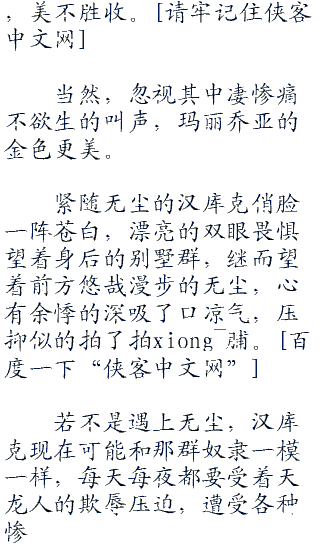 ，美不胜收。[请牢记住侠客
中文网]
当然，忽视其中凄惨痛
不欲生的叫声，玛丽乔亚的
金色更美。
紧随无尘的汉库克俏脸
一阵苍白，漂亮的双眼畏惧
望着身后的别墅群，继而望
着前方悠哉漫步的无尘，心
有余悸的深吸了口凉气，压
抑似的拍了拍xiong ̄脯。[百
度一下“侠客中文网”]
若不是遇上无尘，汉库
克现在可能和那群奴隶一模
一样，每天每夜都要受着天
龙人的欺辱压迫，遭受各种
惨